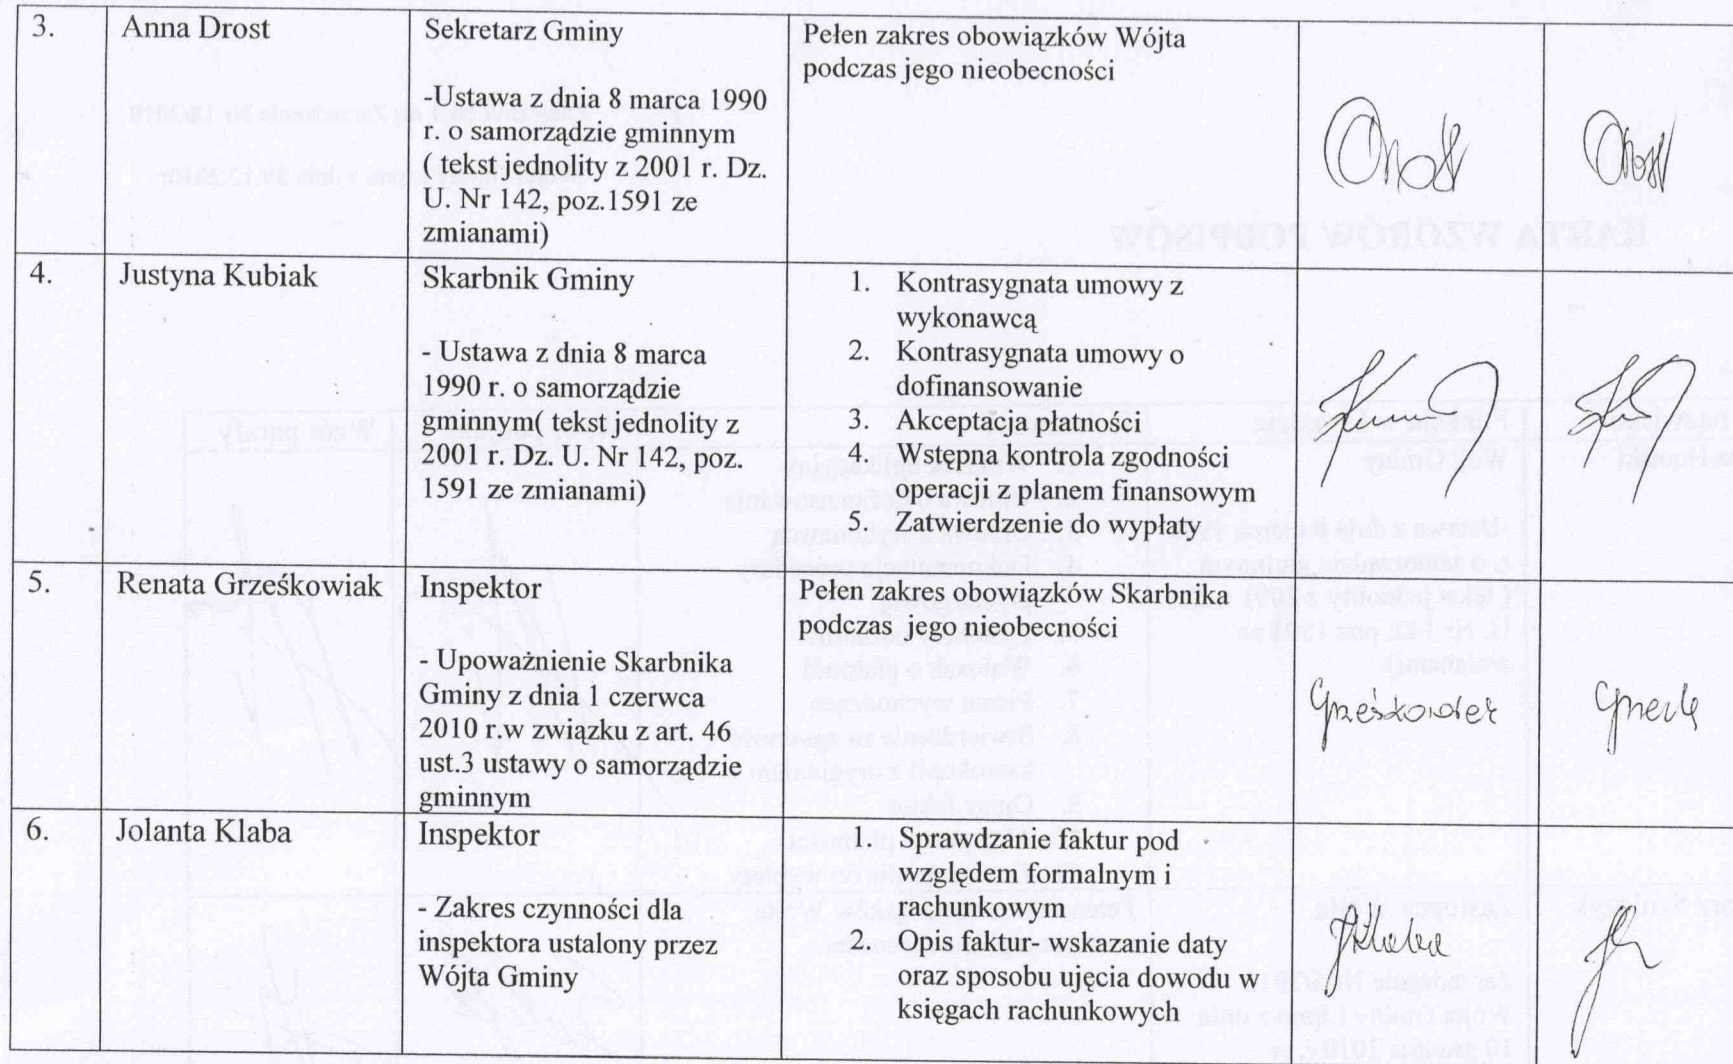 3.
Anna Drost
Sekretarz Gminy
-Ustawa z dnia 8 marca 1990
r. o samorządzie gminnym
( tekst jednolity z 2001 r. Dz.
U. Nr 142, poz.1591 ze
zmianami)
Pełen zakres obowiązków Wójta
podczas jego nieobecności
4.
Justyna Kubiak
Skarbnik Gminy
- Ustawa z dnia 8 marca
1990 r. o samorządzie
gminnym( tekst jednolity z
2001 r. Dz. U. Nr 142, poz.
1591 ze zmianami)
1. Kontrasygnata umowy z
wykonawcą
2. Kontrasygnata umowy o
dofinansowanie
3. Akceptacja płatności
4. Wstępna kontrola zgodności
operacji z planem finansowym
5. Zatwierdzenie do wypłaty
5.
Renata Grześkowiak
Inspektor
- Upoważnienie Skarbnika
Gminy z dnia 1 czerwca
2010 r.w związku z art. 46
ust.3 ustawy o samorządzie
gminnym
Pełen zakres obowiązków Skarbnika
podczas jego nieobecności
6.
Jolanta Klaba
Inspektor
- Zakres czynności dla
inspektora ustalony przez
Wójta Gminy
1. Sprawdzanie faktur pod
względem formalnym i
rachunkowym
2. Opis faktur- wskazanie daty
oraz sposobu ujęcia dowodu w
księgach rachunkowych